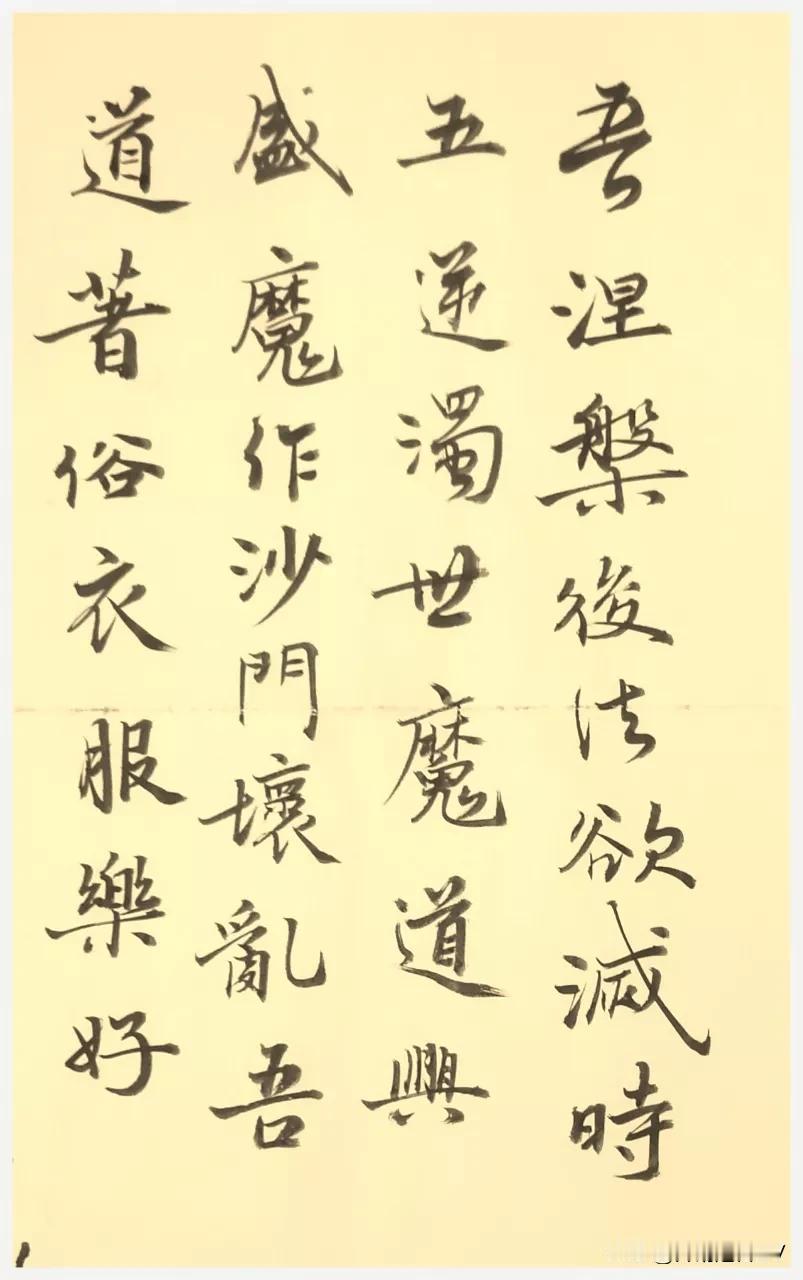 吾涅槃後法欲滅時
五逆濁世魔道興
盛魔作沙門壞亂吾
道著俗衣服樂好